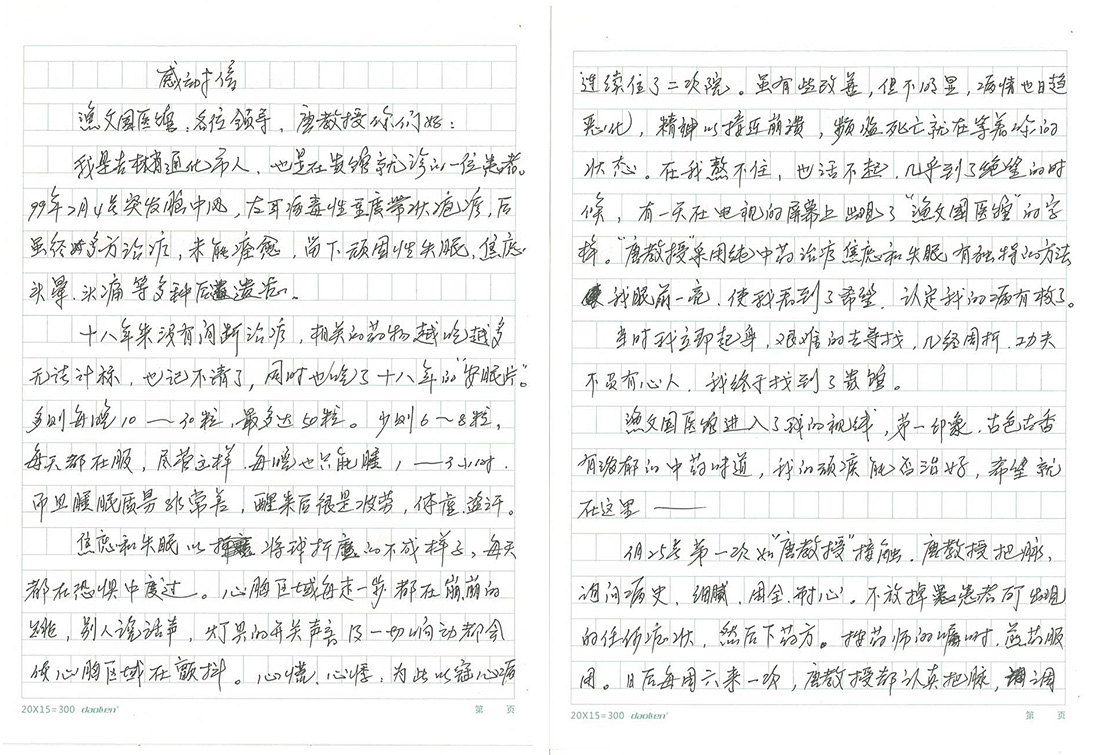 感动才信
渔文国医馆:各位领导、唐教授你们好:
我是吉林省通化市人,也是在贵馆就诊的一位患者。
99年2月4号突发脑中风,左耳病毒性豆疹带状疱疹,后
虽经多方治疗,未能痊愈,留下顽固性失眠、焦虑
头晕、头痛等多种后遗症。
十八年来没有间断治疗,相关的药物越吃越多
无法计标,也记不清了,同时也吃了十八年的"安眠片"。
多则每晚10——30粒,最多达50粒。少则6~8粒,
每天都在服,尽管这样,每晚也只能睡1——3小时.
而且睡眠质易非常差,醒来后很是疲劳,体虚、盗汗。
焦虑和失眠以将我折磨的不成样子,每天
都在恐惧中度过。心胸区域每走一步都在崩崩的
跳,别人说话声,灯具的开关声音及一切响动都会
使心胸区域在颤抖。心慌、心悸,为此以冠心病
20X15=300 daoken
第 页
连续住了二次院。虽有些改善,但不明显,病情也日趋
恶化,精神以接近崩溃,频临死亡就在等着你的
状态。在我熬不住,也活不起,几乎到了绝望的时
候,有一天在电视的屏幕上出现了"渔文国医馆"的字
样。"唐教授"采用纯中药治疗焦虑和失眠有独特的方法
我眼前一亮,使我看到了希望,认定我的病有救了。
当时我立即起身,艰难的去寻找,几经周折,功夫
不负有心人,我终于找到了贵馆。
渔文国医馆进入了我的视线,第一印象,古色古香
有浓郁的中药味道,我的顽疾能否治好,希望就
在这里——
月25号第一次和"唐教授"接触,唐教授把脉,
询问病史,细腻、周全、耐心。不放掉患者可出现
的任何症状,然后下药方。按药师的嘱咐,煎药服
用。日后每周六来一次,唐教授都认真把脉,调
20X15=300 daoken
第 页